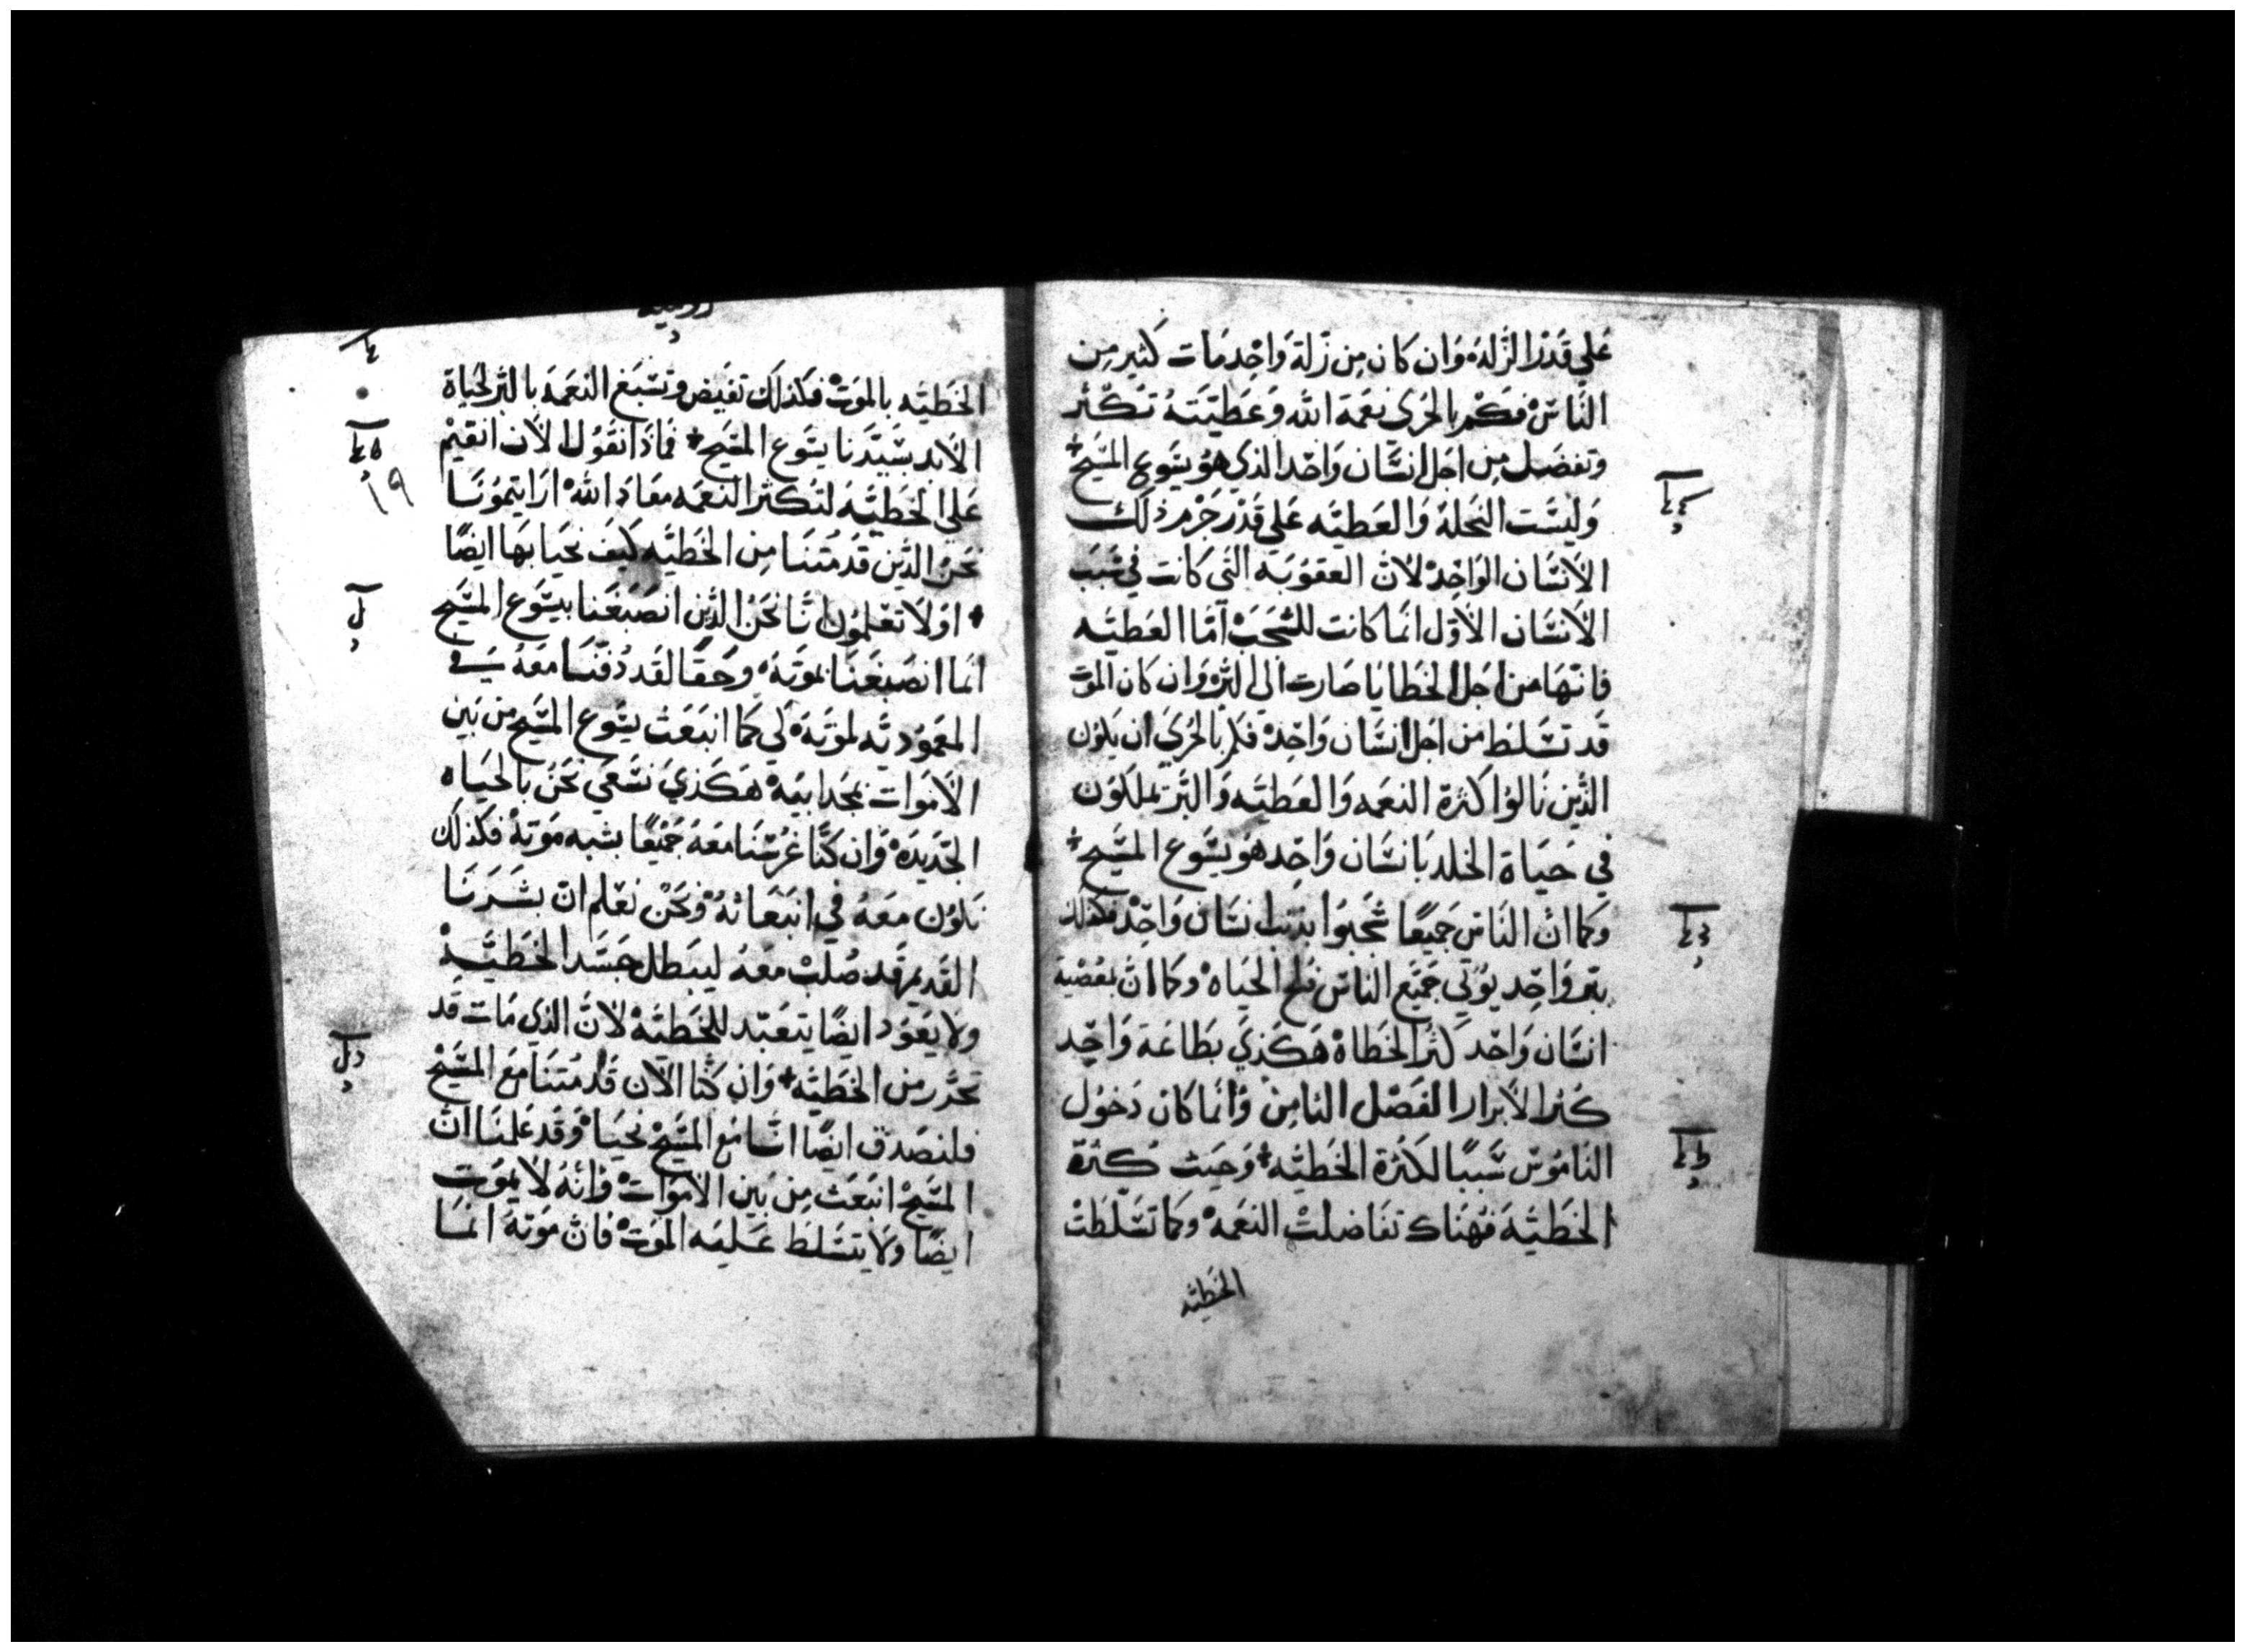 عَلي قَدْر الزَلهْ وَان كان مِن زَلة وَاحِد مَات كثير مِن
النَّاسْ فكَم بالحَرَى نعَمة الله وَعَطيّتهُ تكثر
وتفضل مِن اجَل انسَان وَاحد الذي هوُ يسَوع المسَيح
وَليسَت النحَلة وَالعَطيَه عَلي قَدْر جَرْم ذلك
الأنسَان الوَاحِدْ لانّ العقوُبَة التي كانت في سَبب
الأنسَان الأوَل انَما كانت للشجَبْ أمّا العَطيَه
فانهَا من اجَل الخطايَا صَارت الي البّرْ وَان كان الموَت
قَد تسَلط من اجَل انسَان وَاحِدْ فكم بالحَري ان يكوُن
الذَين نَالوُا كثرة النعَمه وَالعَطيَه وَالبَر يملكوُن
في حَيَاة الخلد بَانسَان وَاحِد هوُ يسَوع المسَيح
وَكما انّ النَاسَ جَميعًا شجَبوا بذنب انسَان وَاحِدْ فكذلك
بتر وَاحِد يوُتي جَميَع الناسّ فلج الحَياه وكما انَّ بمعَصْية
انسَان وَاحَد كثر الخَطاهْ هَكَذي بطَاعَة وَاحِد
كثر الأبرار الفَصْل الثامِنْ وَانمَا كان دَخوُل
النَاموُسّ سَببًا لكثرة الخَطيَه وَحَيث كثرة
الخَطيَة فهُناك تفَاضلتْ النعَمهْ وكما تسَلطَتْ
الخَطيَه
الخَطيَه بالموَتْ فكذلك تفَيض وتسَبغ النعَمة بالبر لحَياة
الأبد بسَيّدنا يسَوع المسَيح فماذَا نقوُل الأن انقيْم
عَلي الخَطيَه لتكثر النعَمه معَاذ الله ارَايتموُنَا
نَحَن الذَين قَد مُتنَا مِن الخَطيَه كيَف نحَيا بهَا ايضًا
اوَلا تعَلموُن انَا نَحَن الذَين انصَبغَنا بيسَوع المسَيح
انَما انصَبغَنَا بموَتهْ وحَقًا لقد دُفنَا معَهُ في
المعَموُديَه لموَتهْ لَكي كما انبَعَث يسَوع المسَيح من بَين
الأموَات بمجد ابيَهْ هَكَذي نسَعَي نحَن بالحَيَاه
الجَديَدهْ وَان كنَا غرُسَنا معَهُ جَميعًا بشبه موَتهْ فكذلك
نكوُن معَهُ في انبَعَاثهْ ونحَنْ نعَلم انّ بشَرَنا
القَديم قَد صُلبْ معَهُ ليبَطل جسَد الخَطيَهْ
ولا يعَوُد ايضًا يتعَبّد للخَطيَهْ لانَّ الذي مَات قد
تحَرّر من الخَطيَه وَان كنَا الأن قَد مُتنَا معَ المسَيحْ
فلنصَدق ايضًا انَا معَ المسَيحْ نحَيَا وَقَد عَلمنَا انّ
المسَيحْ انبَعَث مِن بَين الاموَاتْ وَانهُ لا يموَت
ايضًا ولا يتسَلط عَليَه الموَتْ فانّ موَتهُ انمَا
١٩